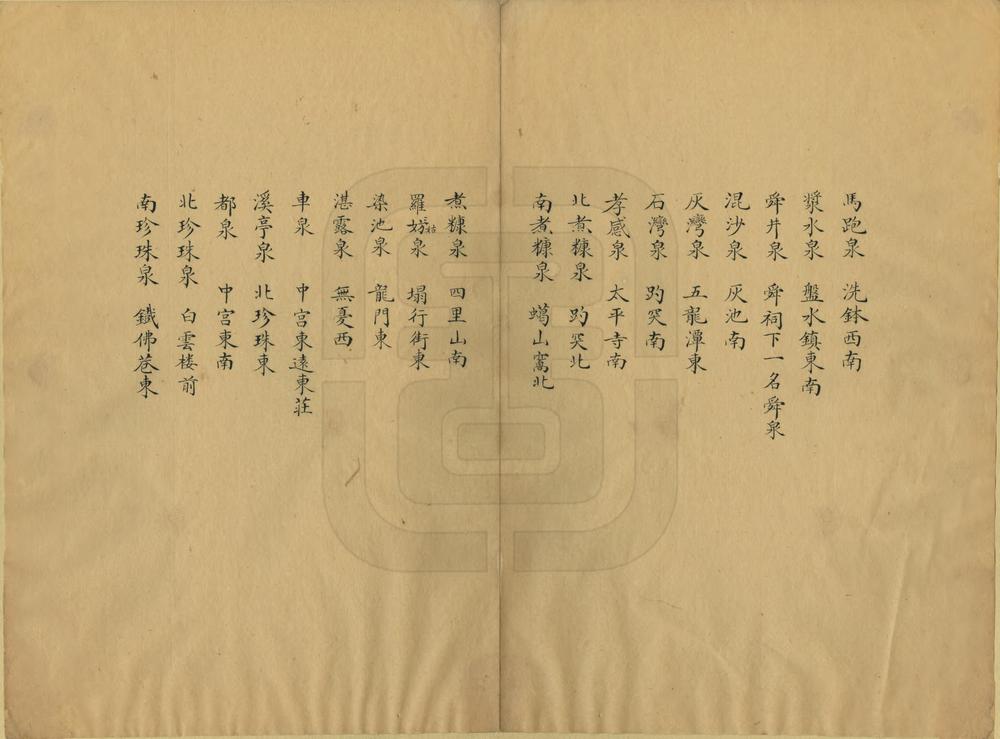 馬跑泉　洗鉢西南
漿水泉　盤水鎮東南
舜井泉　舜祠下一名舜泉
混沙泉　灰池南
灰灣泉　五龍潭東
石灣泉　趵突南
孝感泉　太平寺南
北煮糠泉　趵突北
南煮糠泉　蝎山窩北
煮糠泉　四里山南
羅泉　塌行街東
染池泉　龍門東
湛露泉　無憂西
車泉　中宮東遠東莊
溪亭泉　北珍珠東
都泉　中宮東南
北珍珠泉　白雲楼前
南珍珠泉　鐵佛巷東